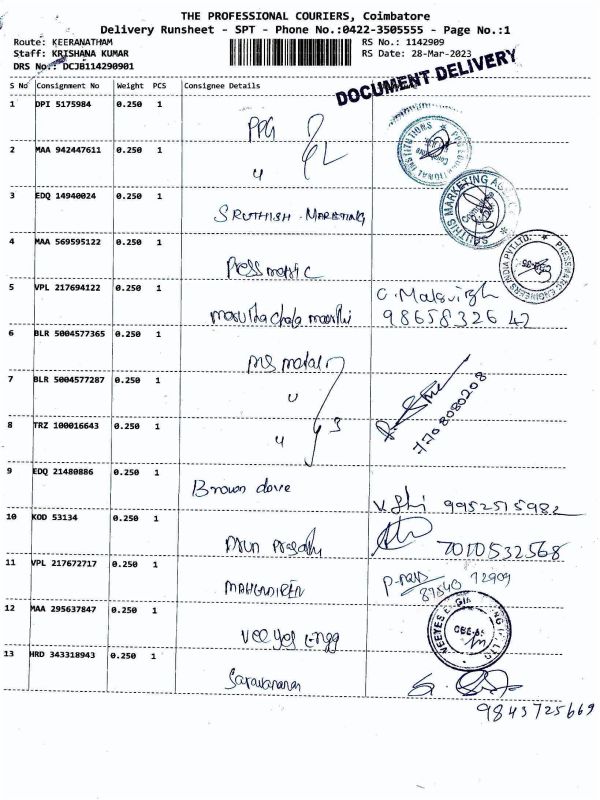 THE PROFESSIONAL COURIERS, Coimbatore
Delivery Runsheet - SPT - Phone No.:0422-3505555 - Page No.:1
Route: KEERANATHAM
RS No.: 1142909
Staff: KRISHANA KUMAR
RS Date: 28-Mar-2023
DRS No.: DCJB114290901
DOCUMENT DELIVERY
S No Consignment No Weight PCS Consignee Details
1 DPI 5175984 0.250 1
PPG
2 MAA 942447611 0.250 1
3 EDQ 14940024 0.250 1
SRUTHISH. MARKETING
SAUTHIS MARKETING
4 MAA 569595122 0.250 1
Pressmatic
PRESSMATIC ENGINEERS INDIA PVT.LTD.
5 VPL 217694122 0.250 1
98658326 42
6 BLR 5004577365 0.250 1
7 BLR 5004577287 0.250 1
7708080208
8 TRZ 100016643 0.250 1
3
9 EDQ 21480886 0.250 1
Brown dove
9952515982
10 KOD 53134 0.250 1
7010532568
11 VPL 217672717 0.250 1
87540 72909
12 MAA 295637847 0.250 1
Veeyes Engg
13 HRD 343318943 0.250 1
Saravanan
9843725669